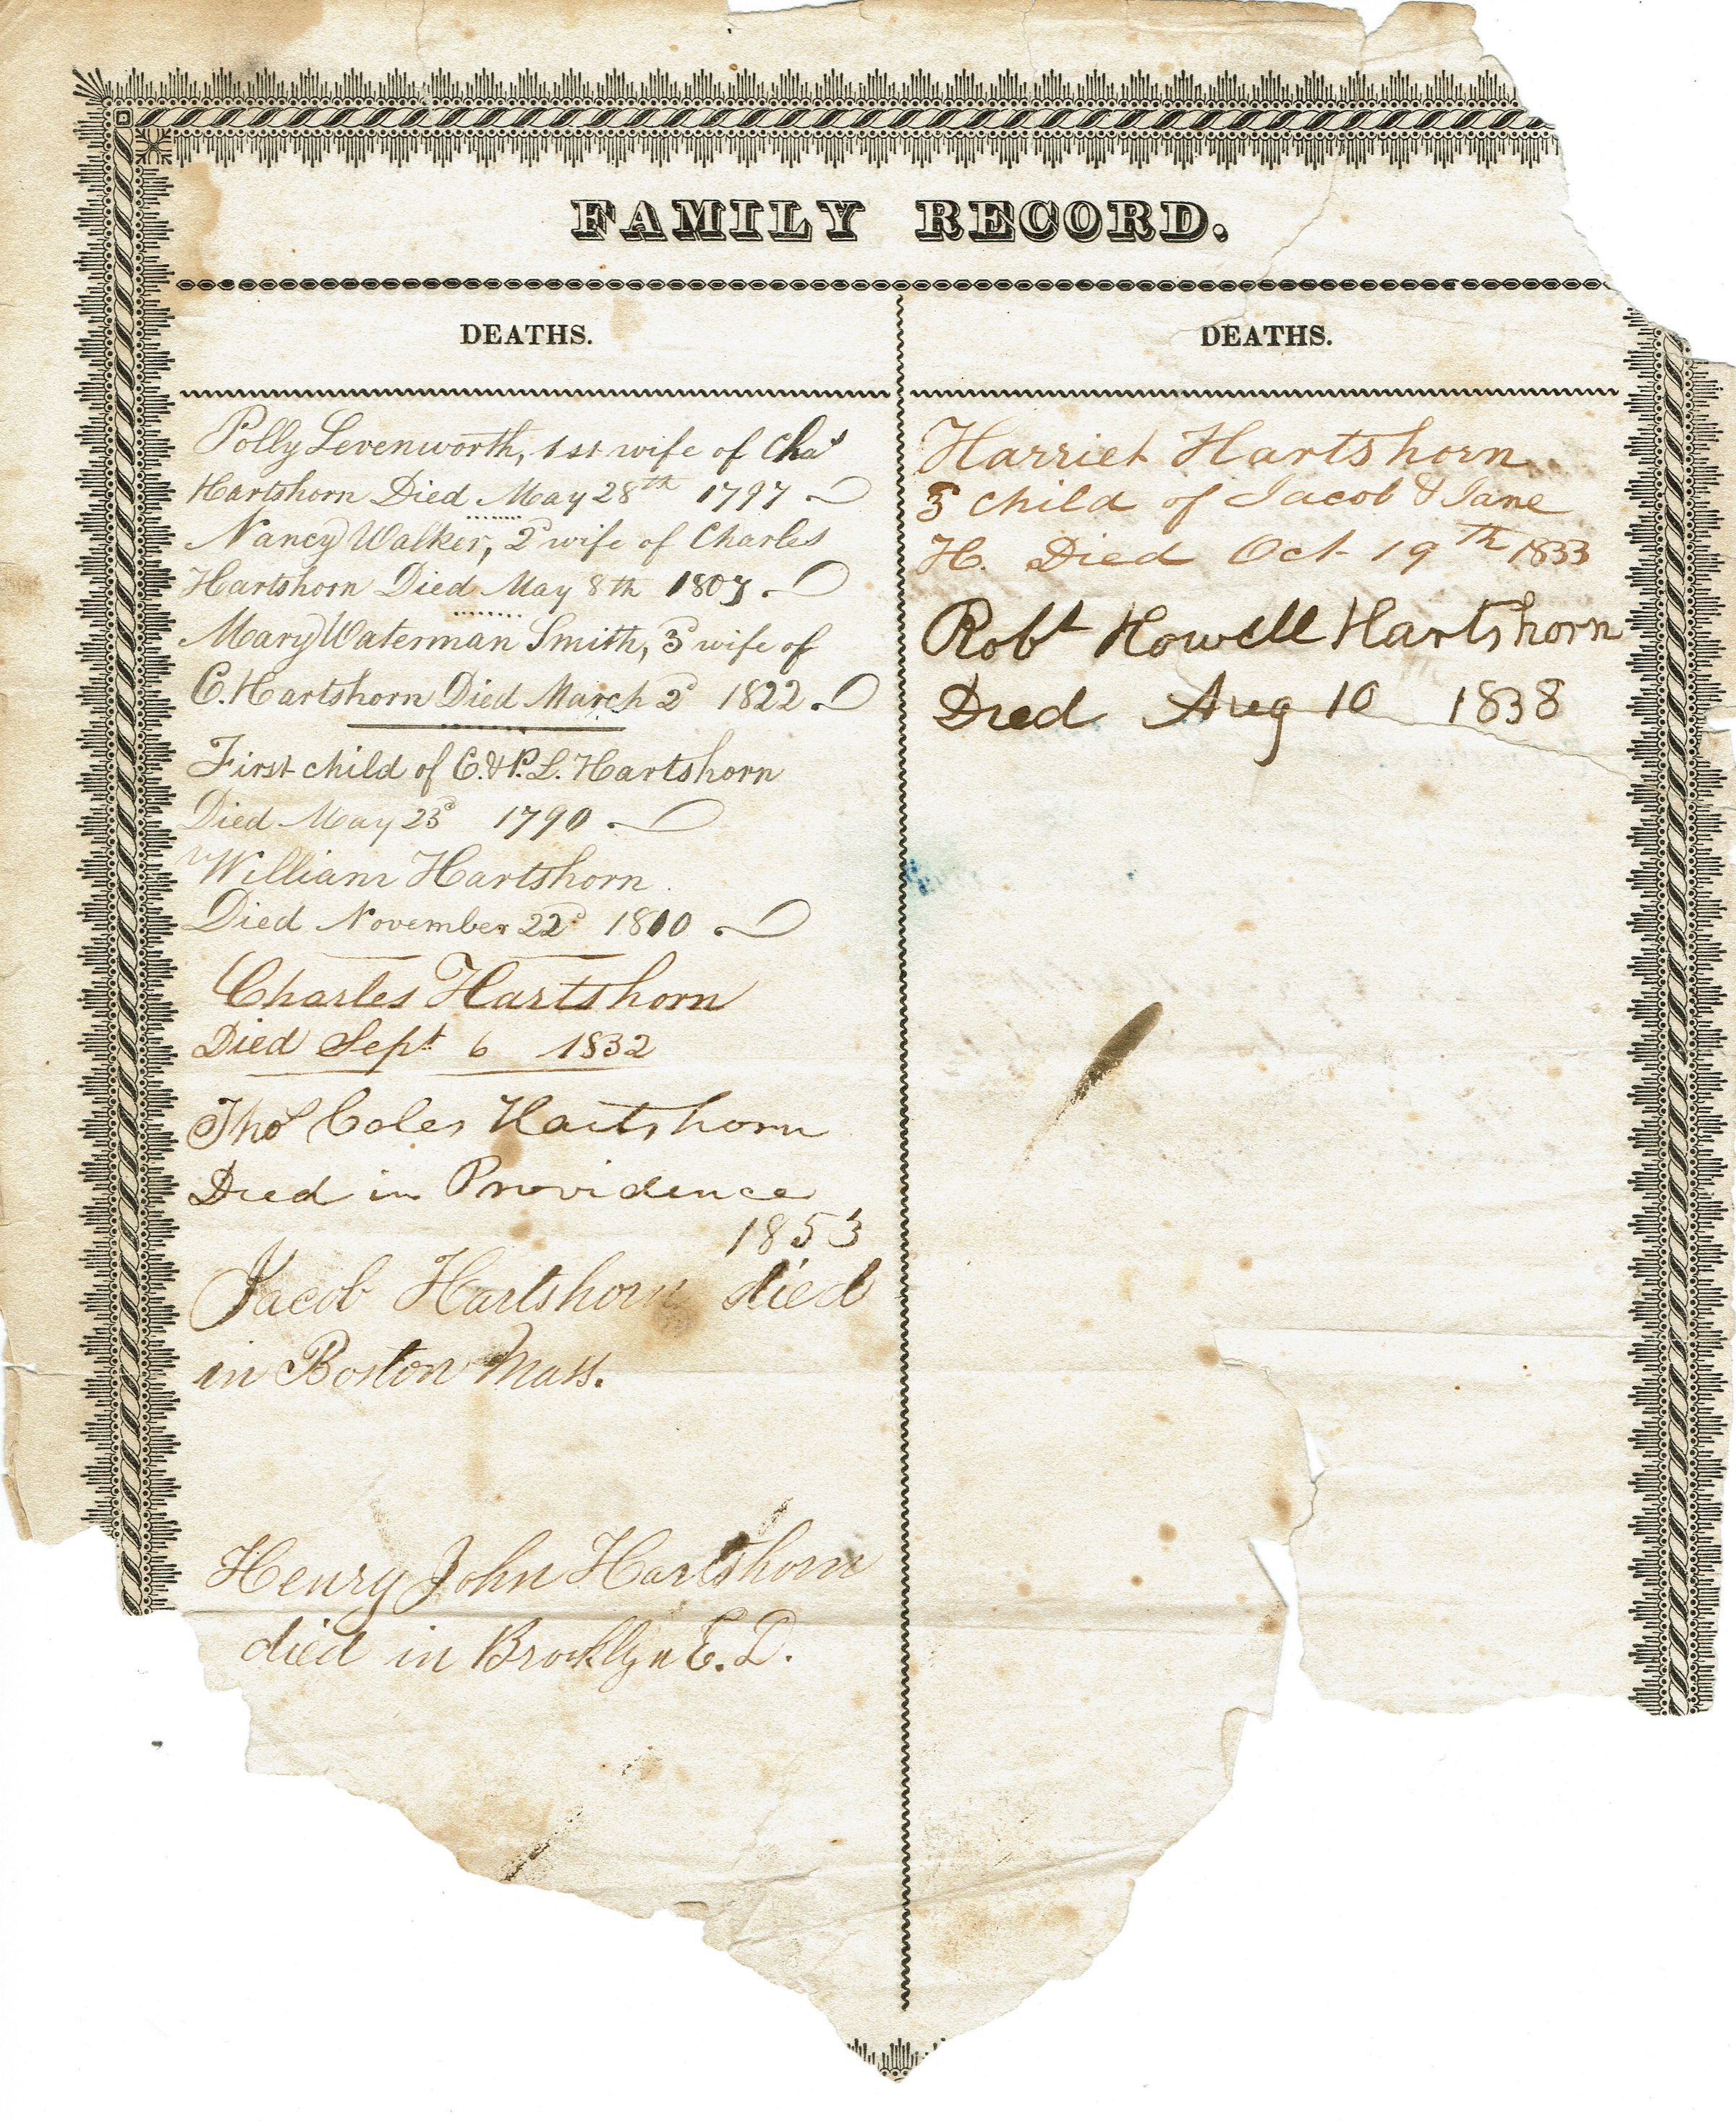 FAMILY RECORD.
DEATHS.
Polly Levenworth, 1st wife of Chaˢ
Hartshorn Died May 28th 1797
Nancy Walker, 2ᵈ wife of Charles
Hartshorn Died May 8th 1807.
Mary Waterman Smith, 3ᵈ wife of
C. Hartshorn Died March 2ᵈ 1822.
First child of C. & P. L. Hartshorn
Died May 23ᵈ 1790.
William Hartshorn
Died November 22ᵈ 1810
Charles Hartshorn
Died Sepᵗ 6 1832
Thoˢ Coles Hartshorn
Died in Providence
1853
Jacob Hartshorn died
in Boston Mass.
Henry John Hartshorn
died in Brooklyn E. D.
DEATHS.
Harriet Hartshorn
3 child of Jacob & Jane
H. Died Oct 19th 1833
Robᵗ Howell Hartshorn
Died Aug 10 1838